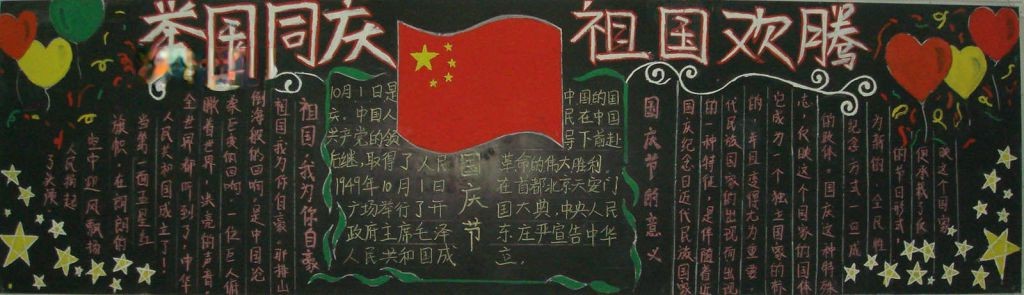 举国同庆 祖国欢腾
祖国 我为你自豪
祖国 我为你自豪 那排山
倒海般的回响，是中国论
全世界都听到了，中华
人民共和国成立了！
当第一面五星红
旗帜，在朗朗的
空中迎风飘扬
人民病站起
了头颅
10月1日是 中国的国
庆，中国人 民在中国
共产党的领 导下前赴
后继，取得了人民 革命的伟大胜利。
1949年10月1日 在首都北京天安门
广场举行了开 国大典，中央人民
政府主席毛泽 东，庄严宣告中华
人民共和国成 立。
国庆节
国庆节的意义
国庆纪念日近代民族国家
的一种特征，是伴随着近
代民族国家的出现而出现
的，并且变得尤为重要。
它成为一个独立国家的标
志，反映这个国家的国体
的政体。国庆这种特殊
纪念方式一旦成
为新的、全民性
的节日形式
便承载了反
映这个国家